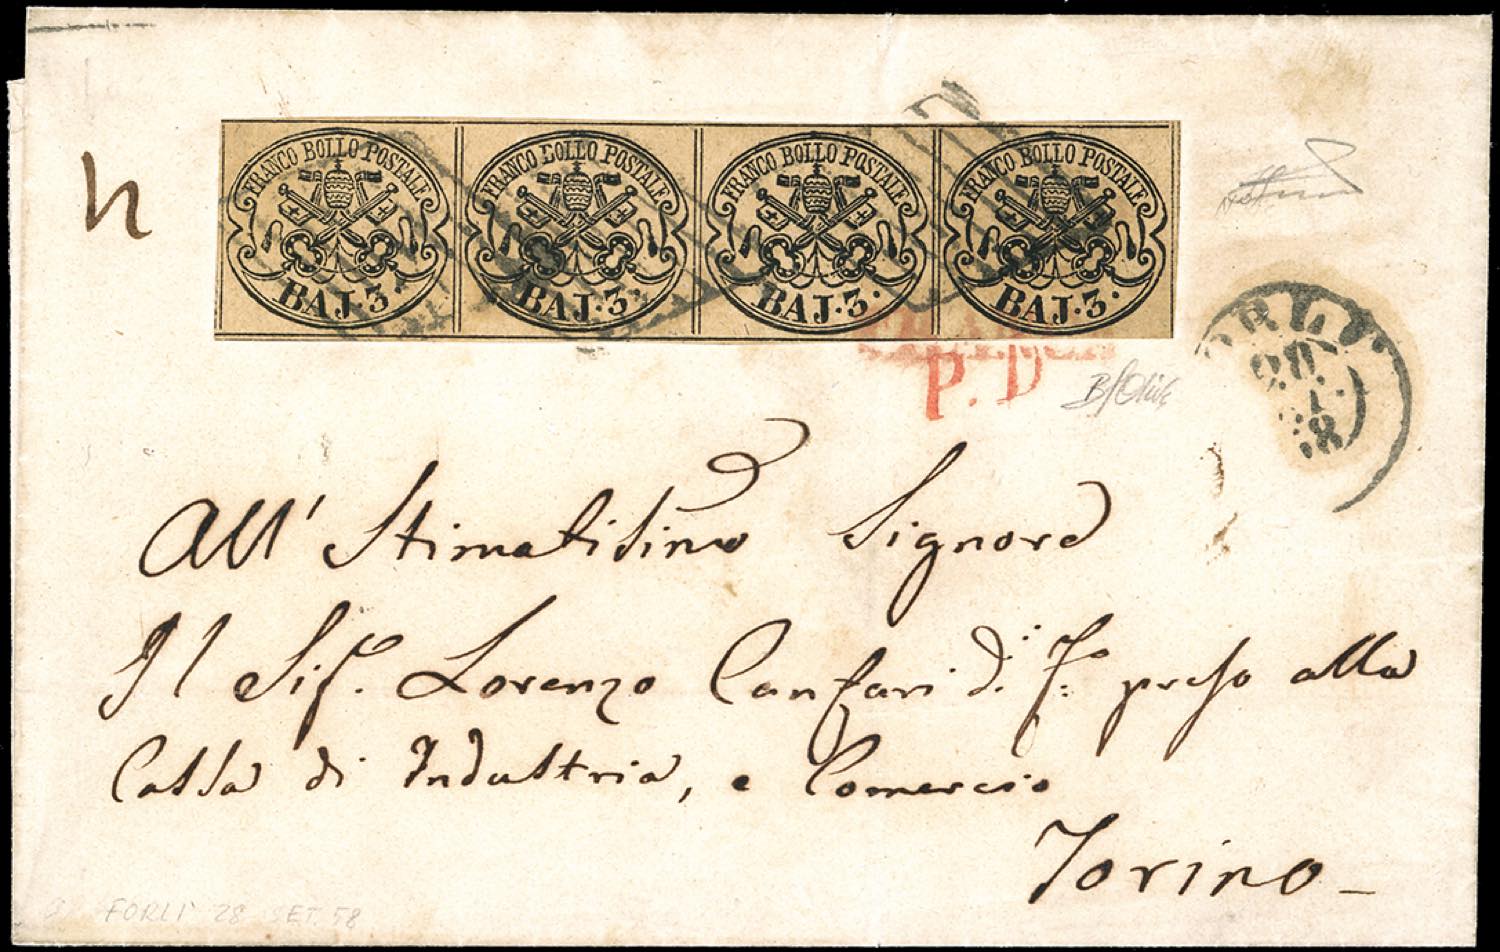 FRANCO BOLLO POSTALE FRANCO BOLLO POSTALE FRANCO BOLLO POSTALE FRANCO BOLLO POSTALE
BAJ. 3. BAJ. 3. BAJ. 3. BAJ. 3.
P. D
FORLI
28
58
All' Stimatisimo Signore
Il Sigr. Lorenzo Canfari d: Fo: presso alla
Cassa di Industria, e Comercio
Torino
FORLI' 28 SET. 58